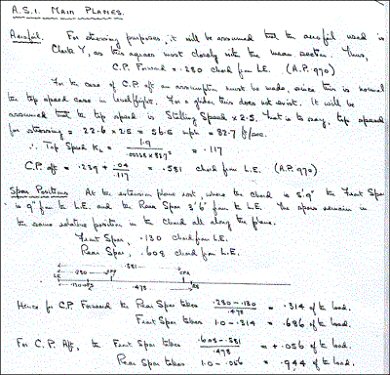 A.S.1. MAIN PLANES.
Aerofoil. For stressing purposes, it will be assumed that the aerofoil used is
Clark Y, as this agrees most closely with the mean section. Thus,
C.P. Forward = .280 chord from L.E. (A.P. 970)
For the case of C.P. aft an assumption must be made, since this is normally
the top speed case in level flight. For a glider this does not exist. It will be
assumed that the top speed is Stalling Speed x 2.5. That is to say, top speed
for stressing = 22.6 x 2.5 = 56.5 mph = 82.7 ft/sec.
∴ Top Speed KL = 1.9 / .00238 x 82.7² = .117
C.P. aft = .239 + .04/.117 = .581 chord from L.E. (A.P. 970)
Spar Positions At the extension plane root, where the chord is 5'9" the Front Spar
is 9" from the L.E. and the Rear Spar 3'6" from the L.E. The spars remain in
the same relative position in the chord all along the plane.
Front Spar, .130 chord from L.E.
Rear Spar, .608 chord from L.E.
.581
LE .280 CPF CPA
.130 FS .478 RS
Hence for C.P. Forward the Rear Spar takes .280 - .130 / .478 = .314 of the load.
Front Spar takes 1.0 - .314 = .686 of the load.
For C.P. Aft, the Front Spar takes .608 - .581 / .478 = + .056 of the load.
Rear Spar takes 1.0 - .056 = .944 of the load.